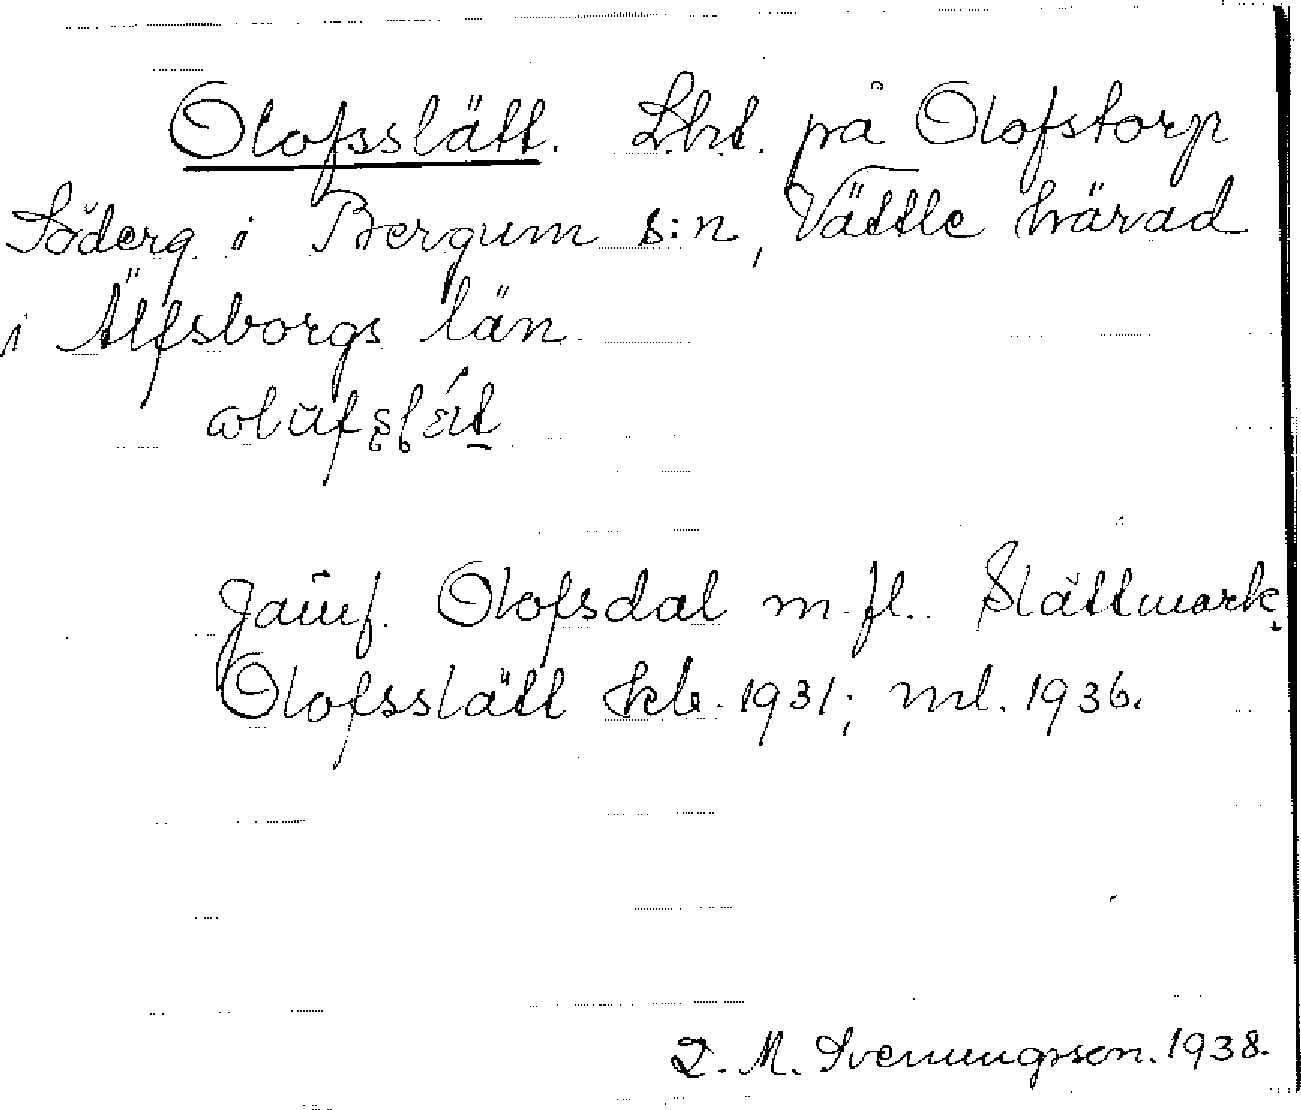 Olofsslätt. Lht. på Olofstorp
Söderg. i Bergum s:n, Vättle härad
i Älfsborgs län.
Jämf. Olofsdal m. fl. Slättmark.
Olofsslätt kb. 1931; ml. 1936.
L. M. Svenungsson. 1938.